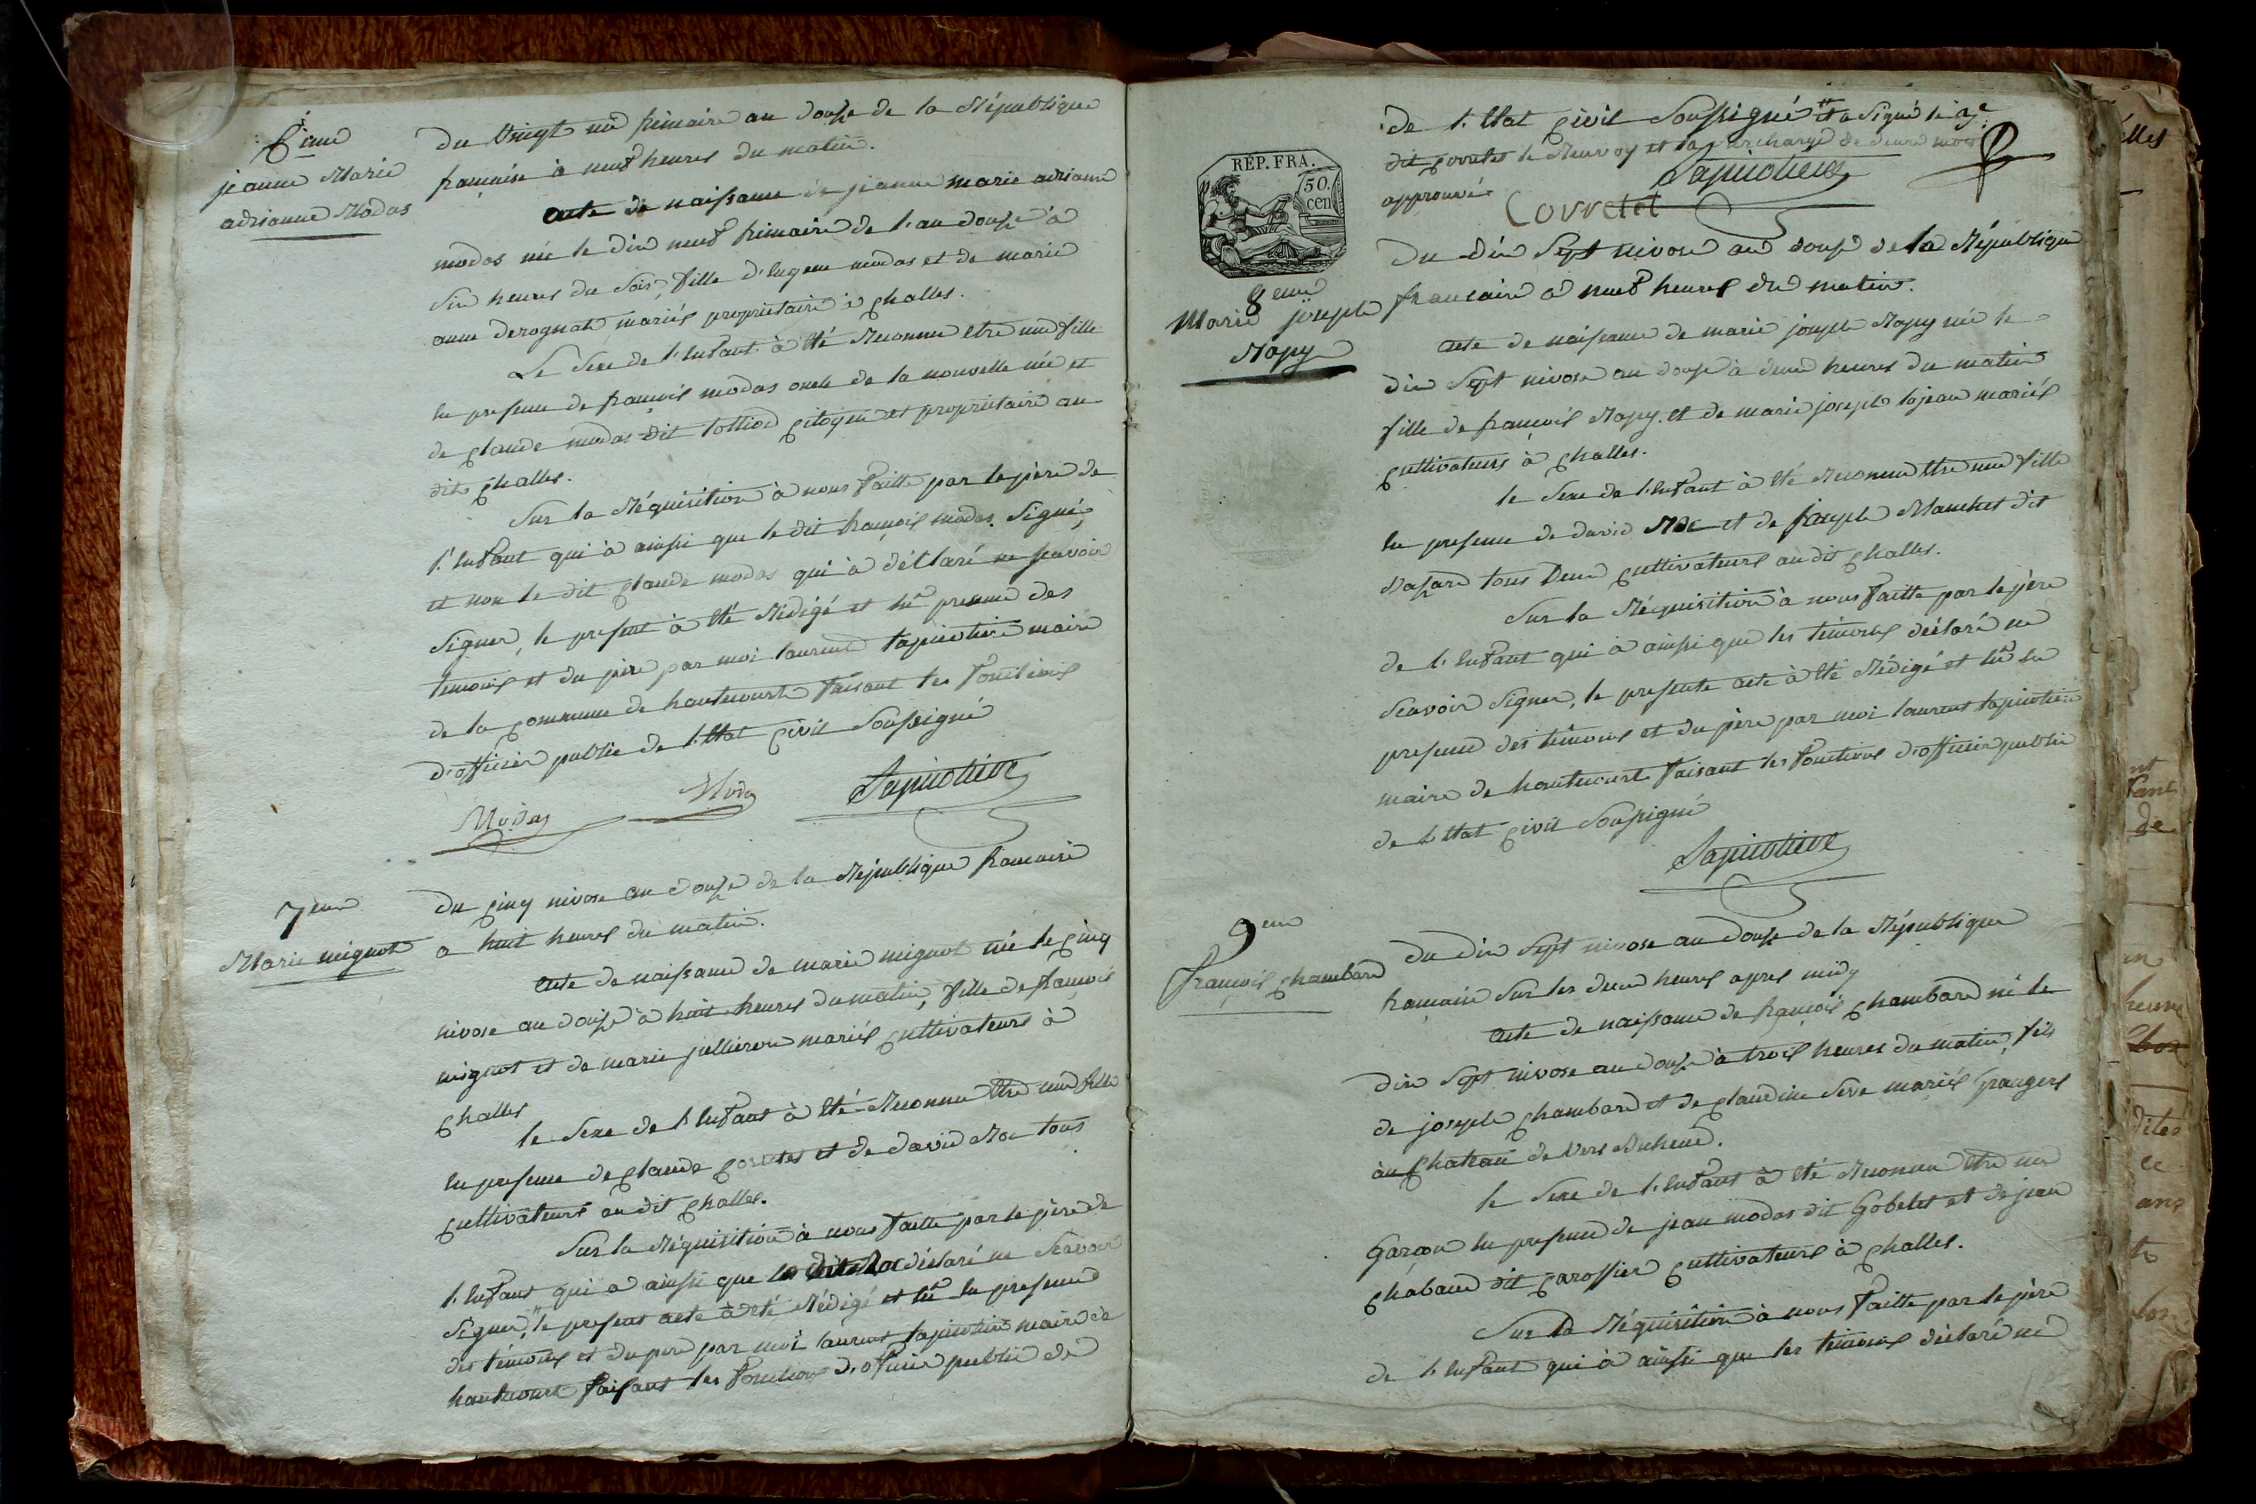 6ieme
jeanne Marie
adrianne Modas
du vingt un frimaire an douze de la République
française à neuf heures du matin.
acte de naissance de jeanne marie adrianne
modas née le dix neuf frimaire de l'an douze à
six heures du soir, fille d'eugene modas et de marie
anne derognat mariés propriétaire à Challes.
Le sexe de l'enfant à été Reconnu etre une fille
en presence de françois modas oncle de la nouvelle née et
de Claude modas dit citoyen et propriétaire au
dit Challes.
Sur la Réquisition à nous faitte par le père de
l'enfant qui à ainsi que le dit françois modas Signé,
et non le dit Claude modas qui à déclaré ne scavoir
signer, le present à été Rédigé et lû presence des
temoins et du père par moi laurent Tapinotière maire
de la Commune de hautecourt faisant les fonctions
d'officier public de l'Etat Civil Soussigné
Modas Moda Tapinotiere
7eme
Marie mignot
du Cinq nivose an douze de la République francaise
a huit heures du matin.
acte de naissance de marie mignot née le Cinq
nivose an douze à huit heures du matin, fille de françois
mignot et de marie jullieron mariés Cultivateurs à
Challes
le sexe de l'enfant à été Reconnu etre une fille
en presence de Claude Corretet et de david Roc tous
Cultivateurs au dit Challes.
Sur la Réquisition à nous faitte par le père de
l'enfant qui a ainsi que le dit Roc déclaré ne Scavoir
signer, le present acte à été Rédigé et lû en presence
des témoins et du pere par moi laurent Tapinotière maire de
hautecourt faisant les fonctions d'officier public de
de l'Etat Civil Soussigné et a Signé le
dit Corretet le Renvoy et la surcharge de deux mots
approuvés Corretet Tapinotiere
RÉP. FRA.
50.
cen
8eme
Marie joseph
Rapy
Du dix Sept nivose an douze de la République
francaise à neuf heures du matin.
acte de naissance de marie joseph Rapy née le
dix Sept nivose an douze à deux heures du matin
fille de françois Rapy et de marie joseph lajean mariés
Cultivateurs à Challes.
le Sexe de l'enfant à été Reconnu etre une fille
en presence de david Roc et de joseph Manchet dit
tous deux Cultivateurs au dit Challes.
Sur la Réquisition à nous faitte par le père
de l'enfant qui à ainsi que les témoins déclaré ne
Scavoir Signer, le presente acte à été Rédigé et lû en
presence des témoins et du père par moi laurent Tapinotière
maire de hautecourt faisant les fonctions d'officier public
de l'Etat Civil Soussigné
Tapinotiere
9eme
françois Chambard
du dix Sept nivose an douze de la République
française Sur les deux heures apres midy
acte de naissance de françois Chambard né le
dix Sept nivose an douze à trois heures du matin, fils
de joseph Chambard et de Claudine Seve mariés Grangers
au Chateau de
le Sexe de l'enfant à été Reconnu etre un
Garçon en presence de jean modas dit Gobelet et de jean
Chabaud dit Carossier Cultivateurs à Challes.
Sur la Réquisition à nous faitte par le père
de l'enfant qui à ainsi que les témoins déclaré ne